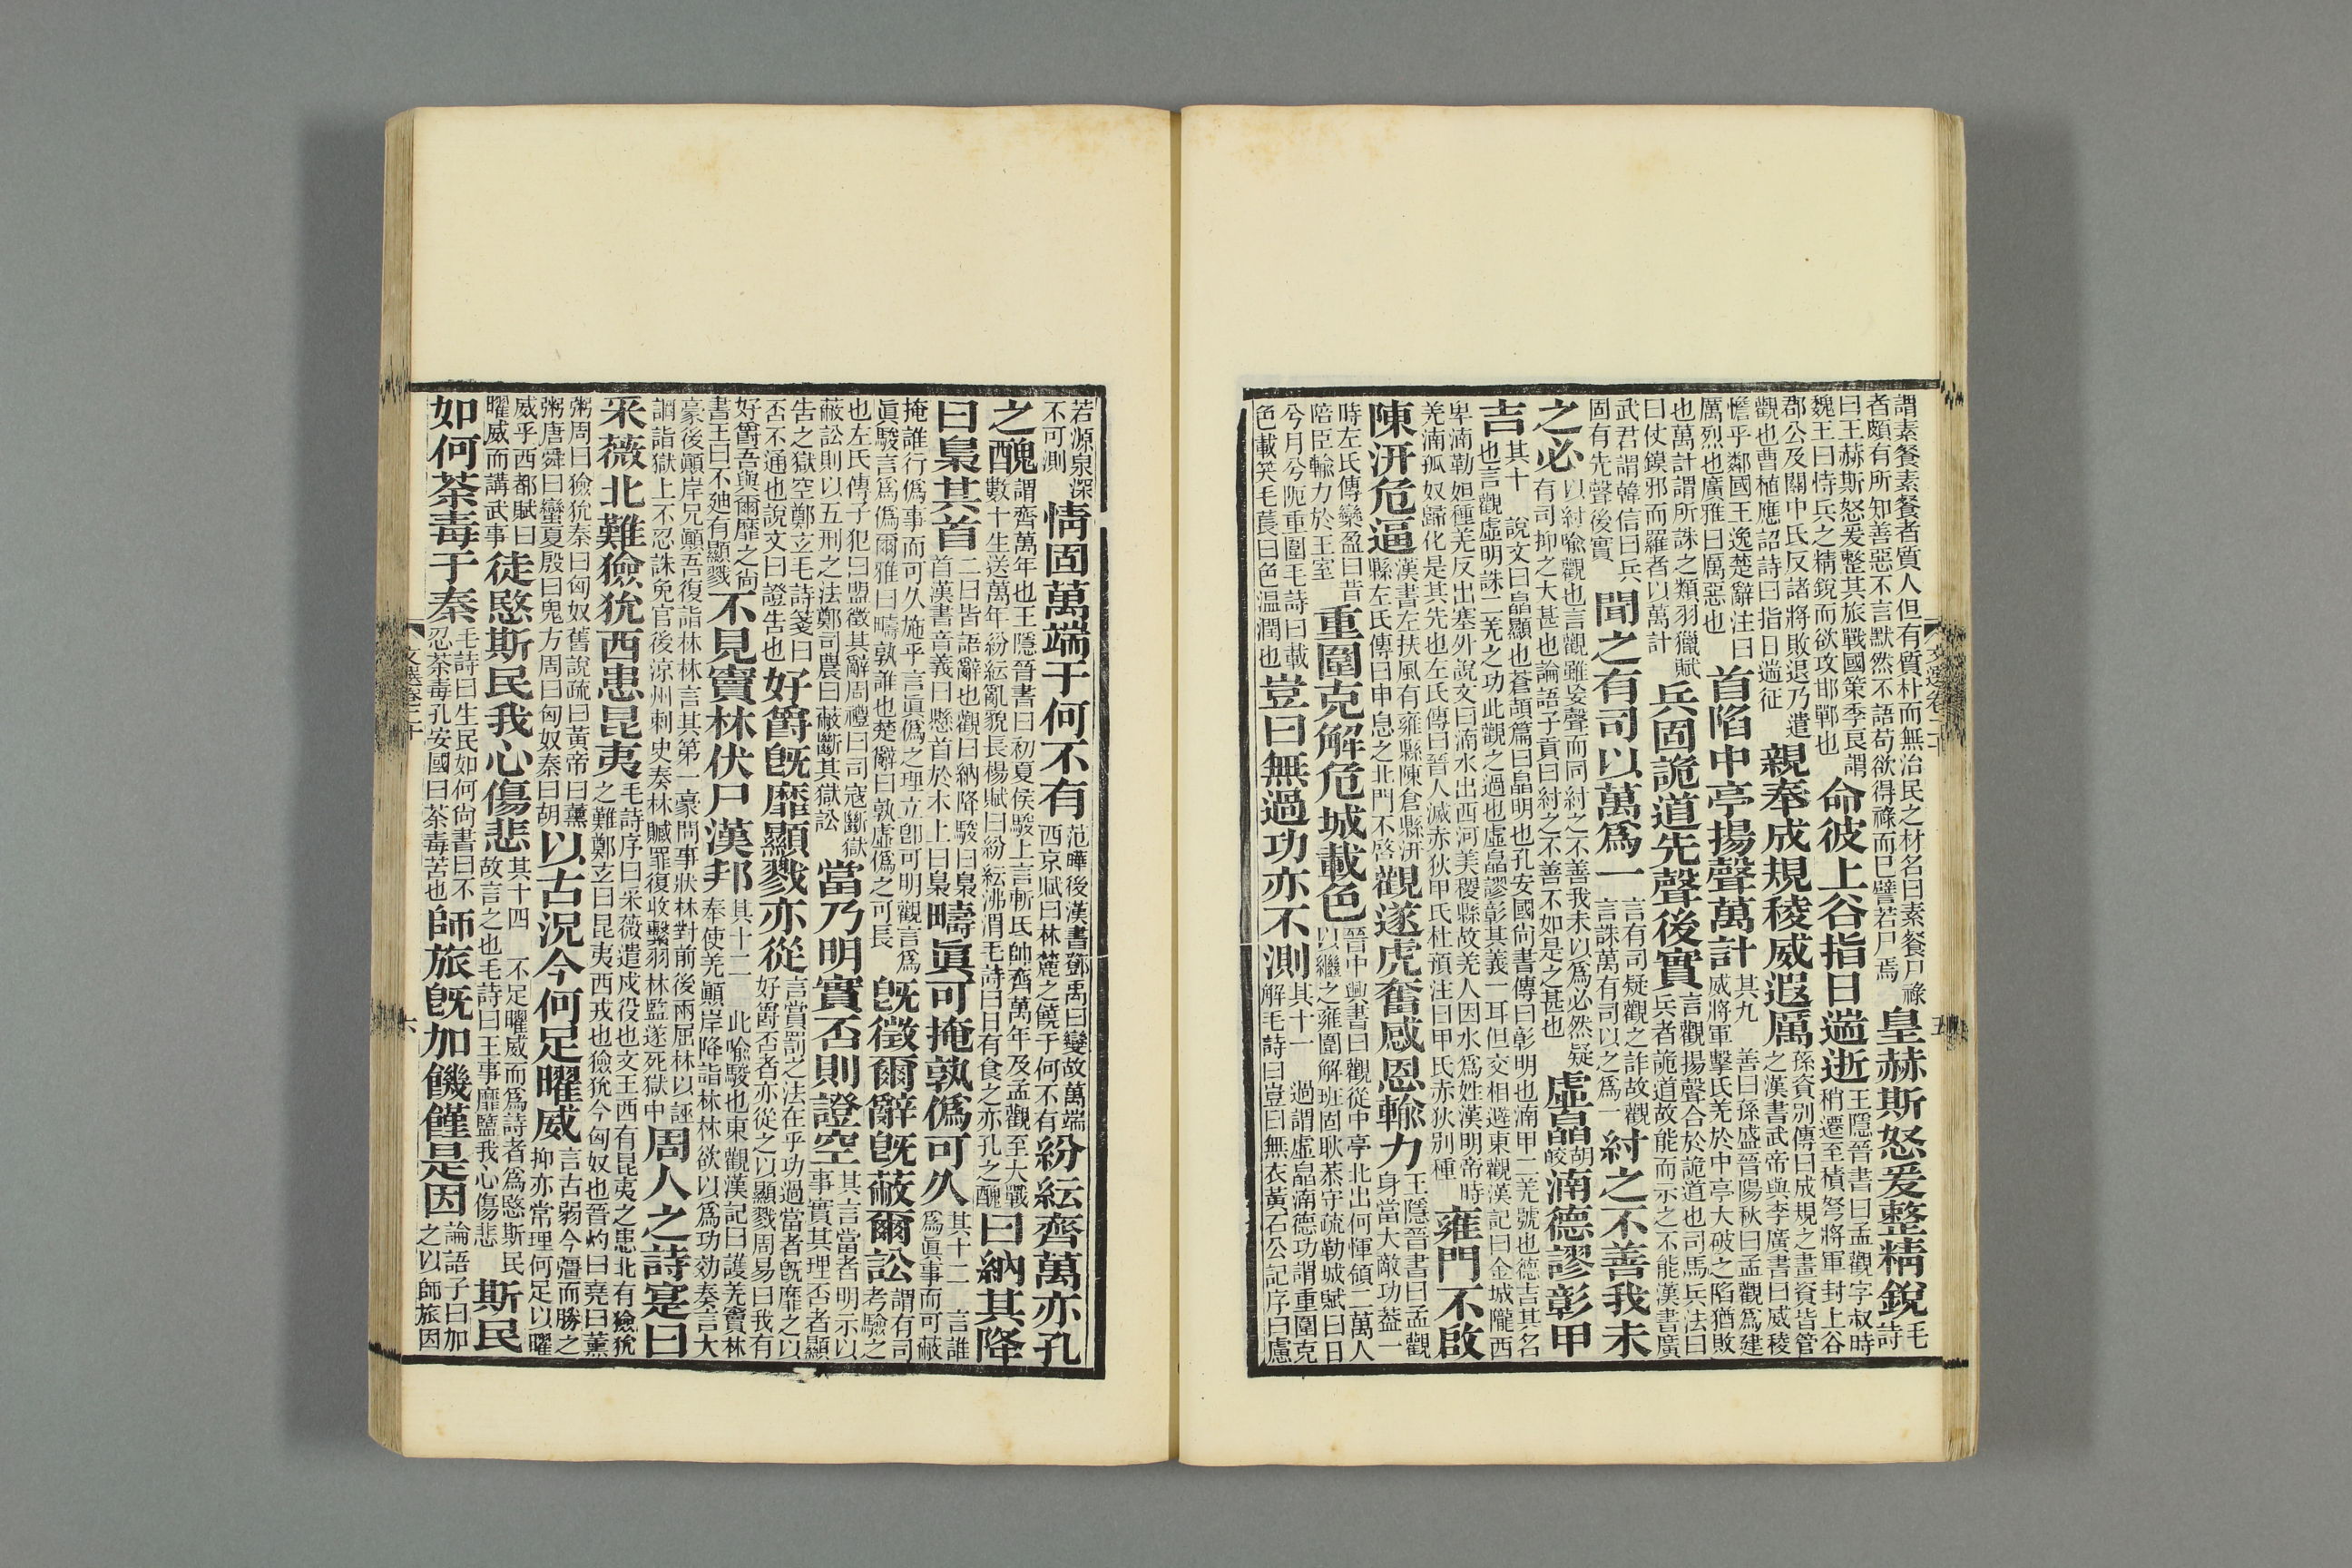 謂素餐素餐者質人但有質朴而無治民之材名曰素餐尸祿者頗有所知善惡不言默然不語苟欲得祿而巳譬若尸焉皇赫斯怒爰整精銳毛詩
曰王赫斯怒爰整其旅戰國策季良謂魏王曰恃兵之精銳而欲攻邯鄲也命彼上谷指日遄逝王隱晉書曰孟觀字叔時稍遷至積弩將軍封上谷
郡公及關中氏反諸將敗退乃遣觀也曹植應詔詩曰指日遄征親奉成規稜威遐厲孫資別傳曰成規之畫資皆管之漢書武帝與李廣書曰威稜
憺乎鄰國王逸楚辭注曰厲烈也廣雅曰厲惡也首陷中亭揚聲萬計其九 善曰孫盛晉陽秋曰孟觀爲建威將軍擊氏羌於中亭大破之陷猶敗
也萬計謂所誅之類羽獵賦曰仗鏌邪而羅者以萬計兵固詭道先聲後實言觀揚聲合於詭道也司馬兵法曰兵者詭道故能而示之不能漢書廣
武君謂韓信曰兵固有先聲後實聞之有司以萬爲一言有司疑觀之詐故觀言誅萬有司以之爲一紂之不善我未
之必以紂喻觀也言觀雖妄聲而同紂之不善我未以爲必然疑有司抑之大甚也論語子貢曰紂之不善不如是之甚也虛皛胡皎湳德謬彰甲
吉其十 說文曰皛顯也蒼頡篇曰皛明也孔安國尚書傳曰彰明也湳甲二羌號也德吉其名也言觀虛明誅二羌之功此觀之過也虛皛謬彰其義一耳但交相避東觀漢記曰金城隴西
卑湳勒姐種羌反出塞外說文曰湳水出西河美稷縣故羌人因水爲姓漢明帝時羌湳孤奴歸化是其先也左氏傳曰晉人滅赤狄甲氏杜預注曰甲氏赤狄別種雍門不啟
陳汧危逼漢書左扶風有雍縣陳倉縣汧縣左氏傳曰申息之北門不啓觀遂虎奮感恩輸力王隱晉書曰孟觀身當大敵功蓋一
時左氏傳欒盈曰昔陪臣輸力於王室重圍克解危城載色晉中興書曰觀從中亭北出何惲領二萬人以繼之雍圍解班固耿恭守疏勒城賦曰日
兮月兮阨重圍毛詩曰載色載笑毛萇曰色温潤也豈曰無過功亦不測其十一 過謂虛皛湳德功謂重圍克解毛詩曰豈曰無衣黃石公記序曰慮
五
若源泉深不可測情固萬端于何不有范曄後漢書鄧禹曰變故萬端西京賦曰林麓之饒于何不有紛紜齊萬亦孔
之醜謂齊萬年也王隱晉書曰初夏侯駿上言斬氐帥齊萬年及孟觀至大戰數十生送萬年紛紜亂貌長楊賦曰紛紜沸渭毛詩曰日有食之亦孔之醜曰納其降
曰梟其首二曰皆語辭也觀曰納降駿曰梟首漢書音義曰懸首於木上曰梟疇眞可掩孰僞可久其十二 言誰爲眞事而可蔽
掩誰行僞事而可久施乎言眞僞之理立卽可明觀言爲眞駿言爲僞爾雅曰疇孰誰也楚辭曰孰虛僞之可長旣徵爾辭旣蔽爾訟謂有司考驗之
也左氏傳子犯曰盟徵其辭周禮曰司寇斷獄蔽訟則以五刑之法鄭司農曰蔽斷其獄訟當乃明實否則證空其言當者明示以事實其理否者顯
告之獄空鄭玄毛詩箋曰否不通也說文曰證告也好爵旣靡顯戮亦從言賞罰之法在乎功過當者旣靡之以好爵否者亦從之以顯戮周易曰我有
好爵吾與爾靡之尚書王曰不廸有顯戮不見竇林伏尸漢邦其十二 此喻駿也東觀漢記曰護羌竇林奉使羌顚岸降詣林林欲以爲功効奏言大
豪後顚岸兄顚吾復詣林林言其第一豪問事狀林對前後兩屈林以誣誷詣獄上不忍誅免官後涼州刺史奏林贓罪復收繫羽林監遂死獄中周人之詩寔曰
采薇北難獫狁西患昆夷毛詩序曰采薇遣戍役也文王西有昆夷之患北有獫狁之難鄭玄曰昆夷西戎也獫狁今匈奴也晉灼曰堯曰薰
粥周曰獫狁秦曰匈奴舊說疏曰黃帝曰薰粥唐舜曰蠻夏殷曰鬼方周曰匈奴秦曰胡以古況今何足曜威言古弱今彊而勝之抑亦常理何足以曜
威乎西都賦曰曜威而講武事徒愍斯民我心傷悲其十四 不足曜威而爲詩者爲愍斯民故言之也毛詩曰王事靡盬我心傷悲斯民
如何荼毒于秦毛詩曰生民如何尚書曰不忍荼毒孔安國曰荼毒苦也師旅旣加饑饉是因論語子曰加之以師旅因
文選卷二十
六